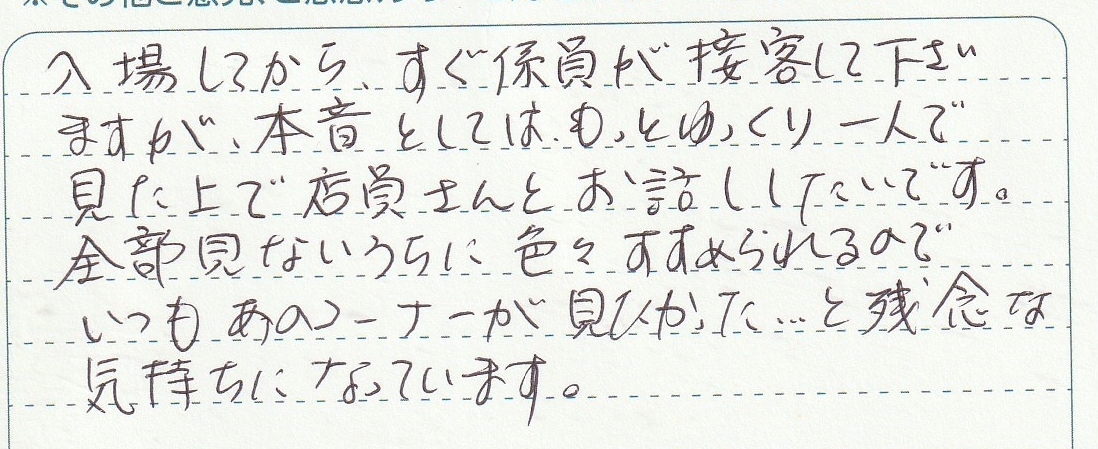 入場してから、すぐ係員が接客して下さい
ますが、本音としては、もっとゆっくり一人で
見た上で店員さんとお話ししたいです。
全部見ないうちに色々すすめられるので
いつもあのコーナーが見たかった…と残念な
気持ちになっています。